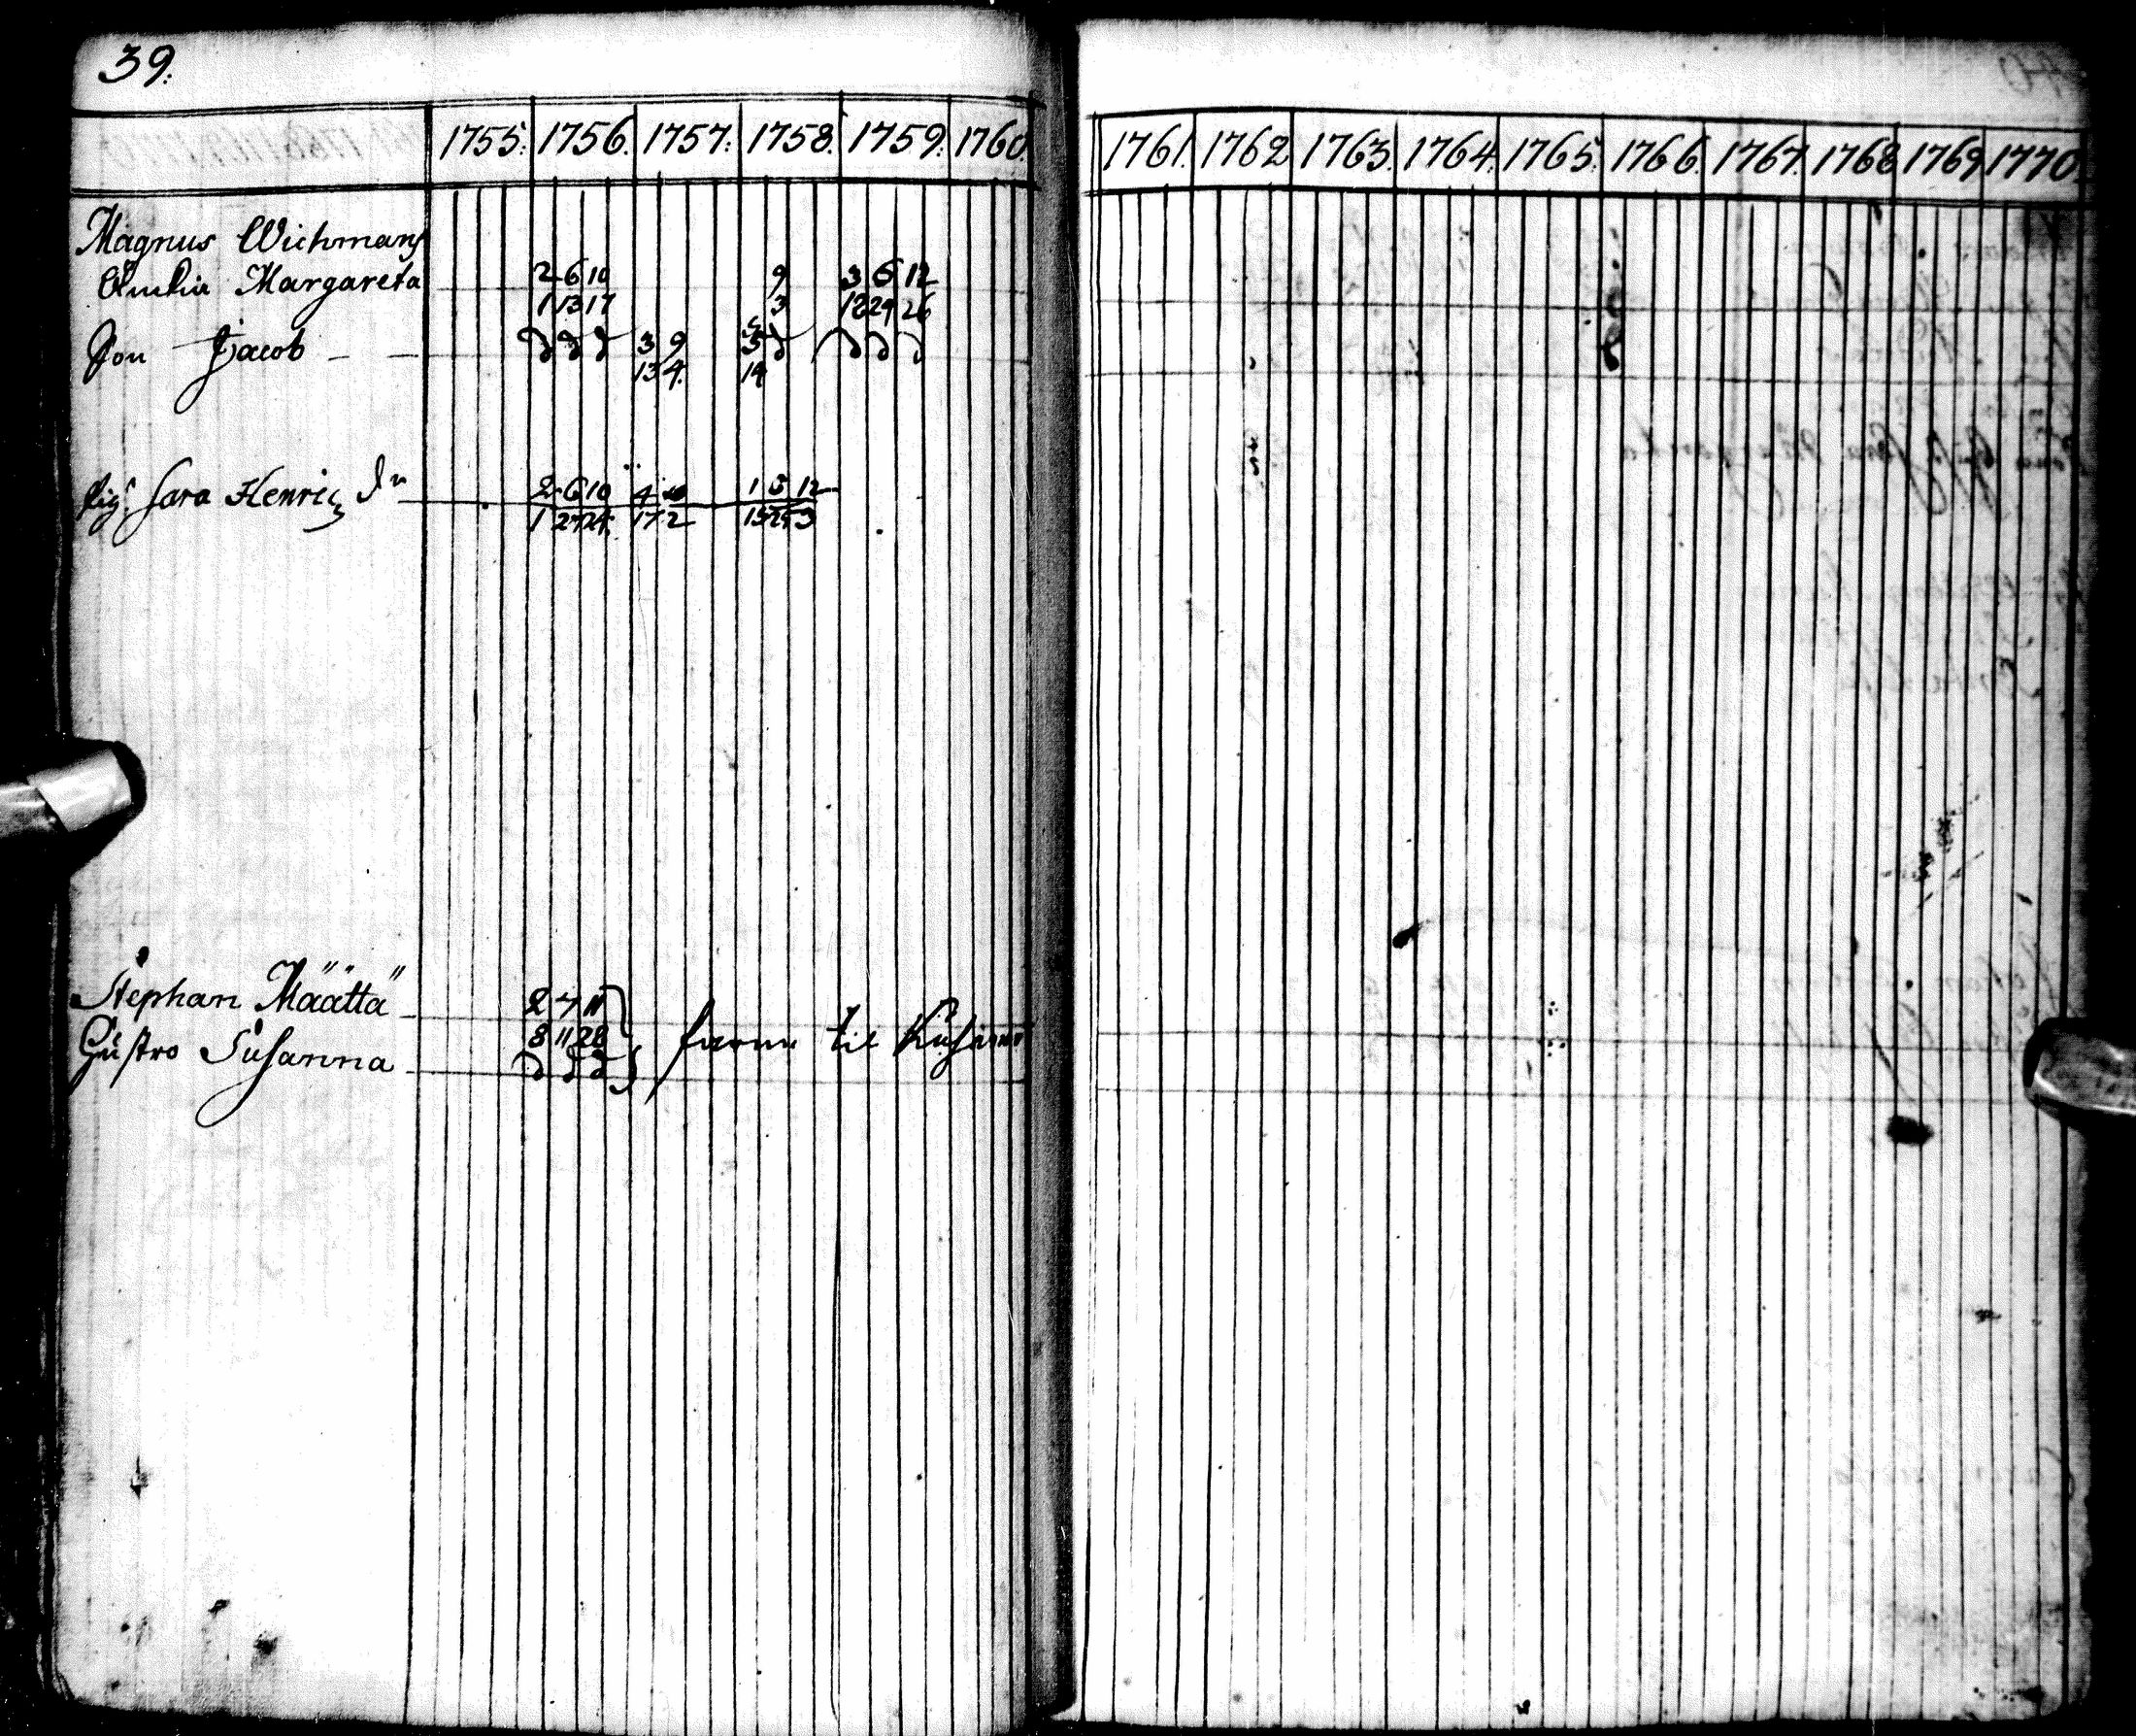 39.
1755. 1756. 1757. 1758. 1759. 1760. 1761. 1762 1763. 1764. 1765. 1766. 1767. 1768 1769 1770.
Magnus Wichmans
Margareta 2 6 10 9 3 6 12
1 13 17 3 18 29 26
Son Jacob 3 9 3
13 4. 14
Pig. Sara Henrics Dr 2 6 10 4 10 1 5 12
1 27 24. 17 2 15 29 3
Stephan Määttä 2 7 11
Hustro Susanna 8 11 28 til